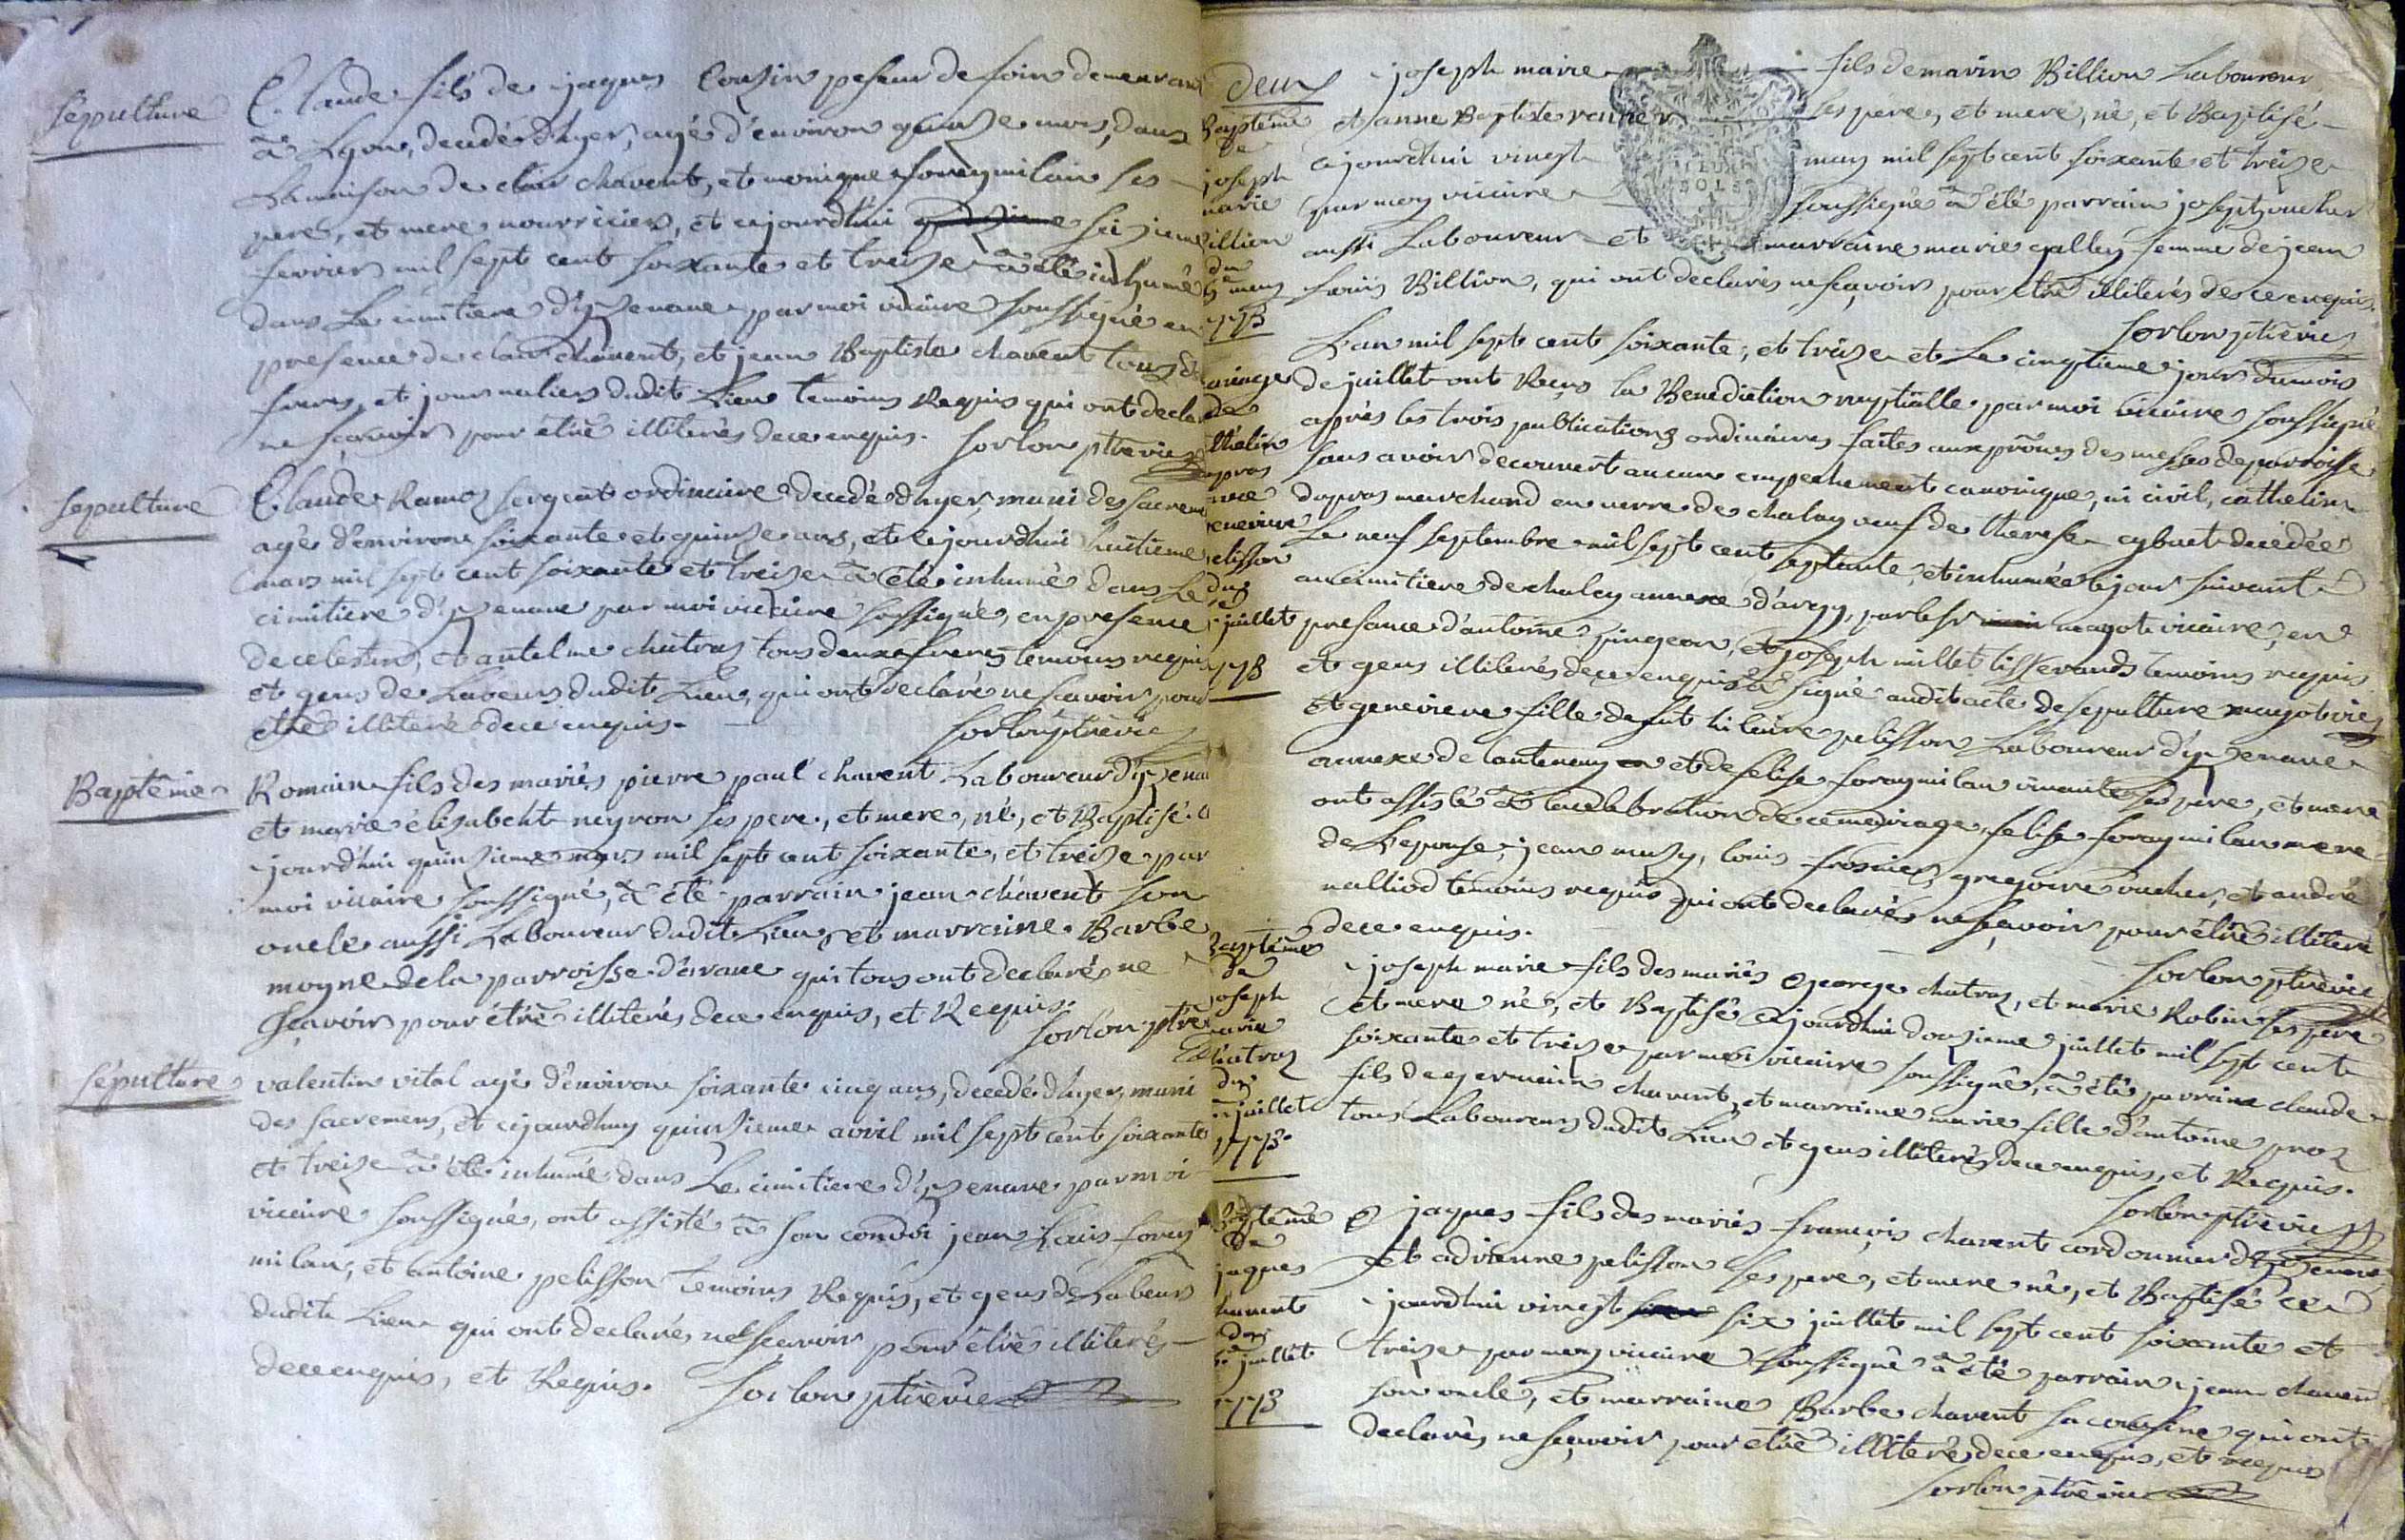 sepulture
Claude fils de jaques Cousin peseur de foin demeurant
à Lyon, decedé d'hyer, agé d'environ quinze mois, dans
La maison de clair chavent, et monique foraymilan ses
pere, et mere nourriciers, et cejourdhui seizieme
fevrier mil sept cent soixante et treize à été inhumé
dans Le cimitiere d'izenave par moi vicaire soussigné en
presence de clair chavent, et jean Baptiste chavent tous d
freres, et journaliers dudit Lieu temoins Requis qui ont decla
ne sçavoir pour être illiterés de ce enquis. sorlon ptre vic
sepulture
Claude Ramoz sergent ordinaire decedé d'hyer, muni des sacrem
agé d'environ soixante et quinze ans, et cejourdhui huitieme
mars mil sept cent soixante et treize à été inhumé dans Le
cimitiere d'izenave par moi vicaire soussigné, en presence
de celestin, et antelme chatraz tous deux freres temoins requis
et gens de Labeurs dudit Lieu, qui ont declaré ne sçavoir pour
etre illiteré de ce enquis. sorlon ptre vic
Baptême
Romain fils des mariés pierre paul chavent Laboureur d'izena
et marie élizabeht neyron ses pere, et mere, né, et Baptisé c
jourdhui quinzieme mars mil sept cent soixante, et treize par
moi vicaire soussigné, à été parrain jean chavent son
oncle aussi Laboureur dudit Lieu, et marraine Barbe
moyne de la parroisse d'arane qui tous ont declarés ne
sçavoir pour être illiterés de ce enquis, et Requis.
sorlon ptre
sépulture
valentin vital agé d'environ soixante cinq ans, decedé d'hyer, muni
des sacremens, et cejourdhuy quinzieme avril mil sept cent soixante
et treize à été inhumé dans Le cimitiere d'izenave par moi
vicaire soussigné, ont assisté à son convoi jean Louis foray
milan, et antoine pelisson temoins Requis, et gens de Labeurs
dudit Lieu qui ont declarés ne sçavoir pour être illiterés
de ce enquis, et Requis. sorlon ptre vic
deux
Baptême
de
joseph
marie
illion
du
may
1773
joseph marie fils de marin Billion Laboureur
et anne Baptiste ravier ses pere, et mere, né, et Baptisé
cejourdhui vingt may mil sept cent soixante et treize
par moy vicaire soussigné à été parrain joseph vucher
aussi Laboureur et marraine marie galley femme de jean
Louis Billion, qui ont declarés ne sçavoir pour être illiterés de ce enquis.
sorlon ptre vic
ariage
de
thelin
upras
enevieve
elisson
du
juillet
1773
L'an mil sept cent soixante, et treize et Le cinqtieme jour du mois
de juillet ont Reçus la Benediction nuptialle par moi vicaire soussigné
après les trois publications ordinaires faites aux prônes des messes de parroisse
sans avoir decouvert aucun empechement canonique, ni civil, cathelin
dupras marchand en verre de chaley veuf de therese cybuet decedée
Le neuf septembre mil sept cent septante, et inhumée le jour suivant
au cimitiere de chaley annexe d'argy, par le sr magot vicaire, en
presance d'antoine pingeon, et joseph millet tisserands temoins requis
et gens illiterés de ce enquis a signé audit acte de sepulture magot vic
et genevieve fille de fut hilaire pelisson Laboureur d'izenave
annexe de lantenay et de felise foraymilan vivante ses pere, et mere
ont assisté à la celebration de ce mariage, felise foraymilan mere
de L'epouse, jean muzy, louis frosnier, gregoire vucher, et andré
nalliod temoins requis qui ont declarés ne sçavoir pour être illiteré
de ce enquis. sorlon ptre vic
Baptême
de
joseph
marie
chatraz
du
juillet
1773.
joseph marie fils des mariés george chatraz, et marie Robin ses pere
et mere né, et Baptisé cejourdhui douzieme juillet mil sept cent
soixante et treize par moi vicaire soussigné, à été parrain claude
fils de germain chavent, et marraine marie fille d'antoine proz
tous Laboureurs dudit Lieu et gens illiterés de ce enquis, et Requis.
sorlon ptre vic
Baptême
de
jaques
havent
du
juillet
1773
jaques fils des mariés françois chavent cordonnier d'izenave
et adrienne pelisson ses pere, et mere né, et Baptisé ce
jourdhui vingt six juillet mil sept cent soixante et
treize par moy vicaire soussigné à été parrain jean chavent
son oncle, et marraine Barbe chavent sa cousine qui ont
declarés ne sçavoir pour etre illiterés de ce enquis, et requis
sorlon ptre vic